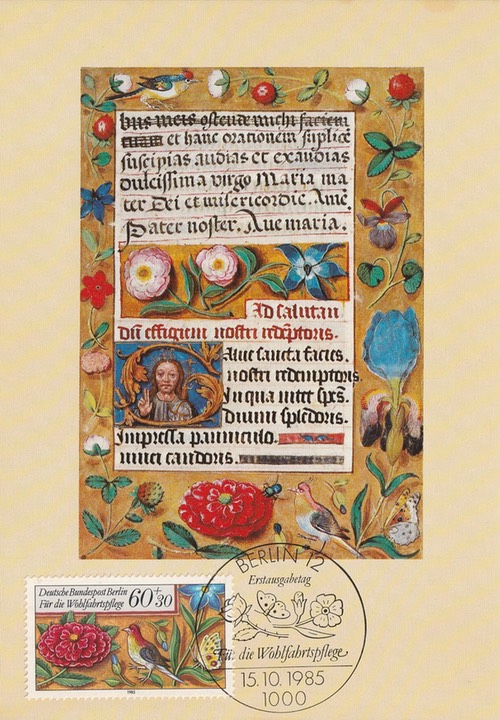 bus meis ostende michi faciem
tuam et hanc orationem suplicē
suscipias audias et exaudias
dulcissima virgo Maria ma
ter Dei et misericordie. Amē.
Pater noster. Ave maria.
Ad salutan
dū effigiem nostri redēptoris.
Salve sancta facies.
nostri redemptoris.
In qua nitet spēs.
divini splēdoris.
Impressa panniculo.
nivei candoris.
BERLIN 12
Erstausgabetag
Für die Wohlfahrtspflege
15.10.1985
1000
Deutsche Bundespost Berlin
Für die Wohlfahrtspflege
60+30
1985